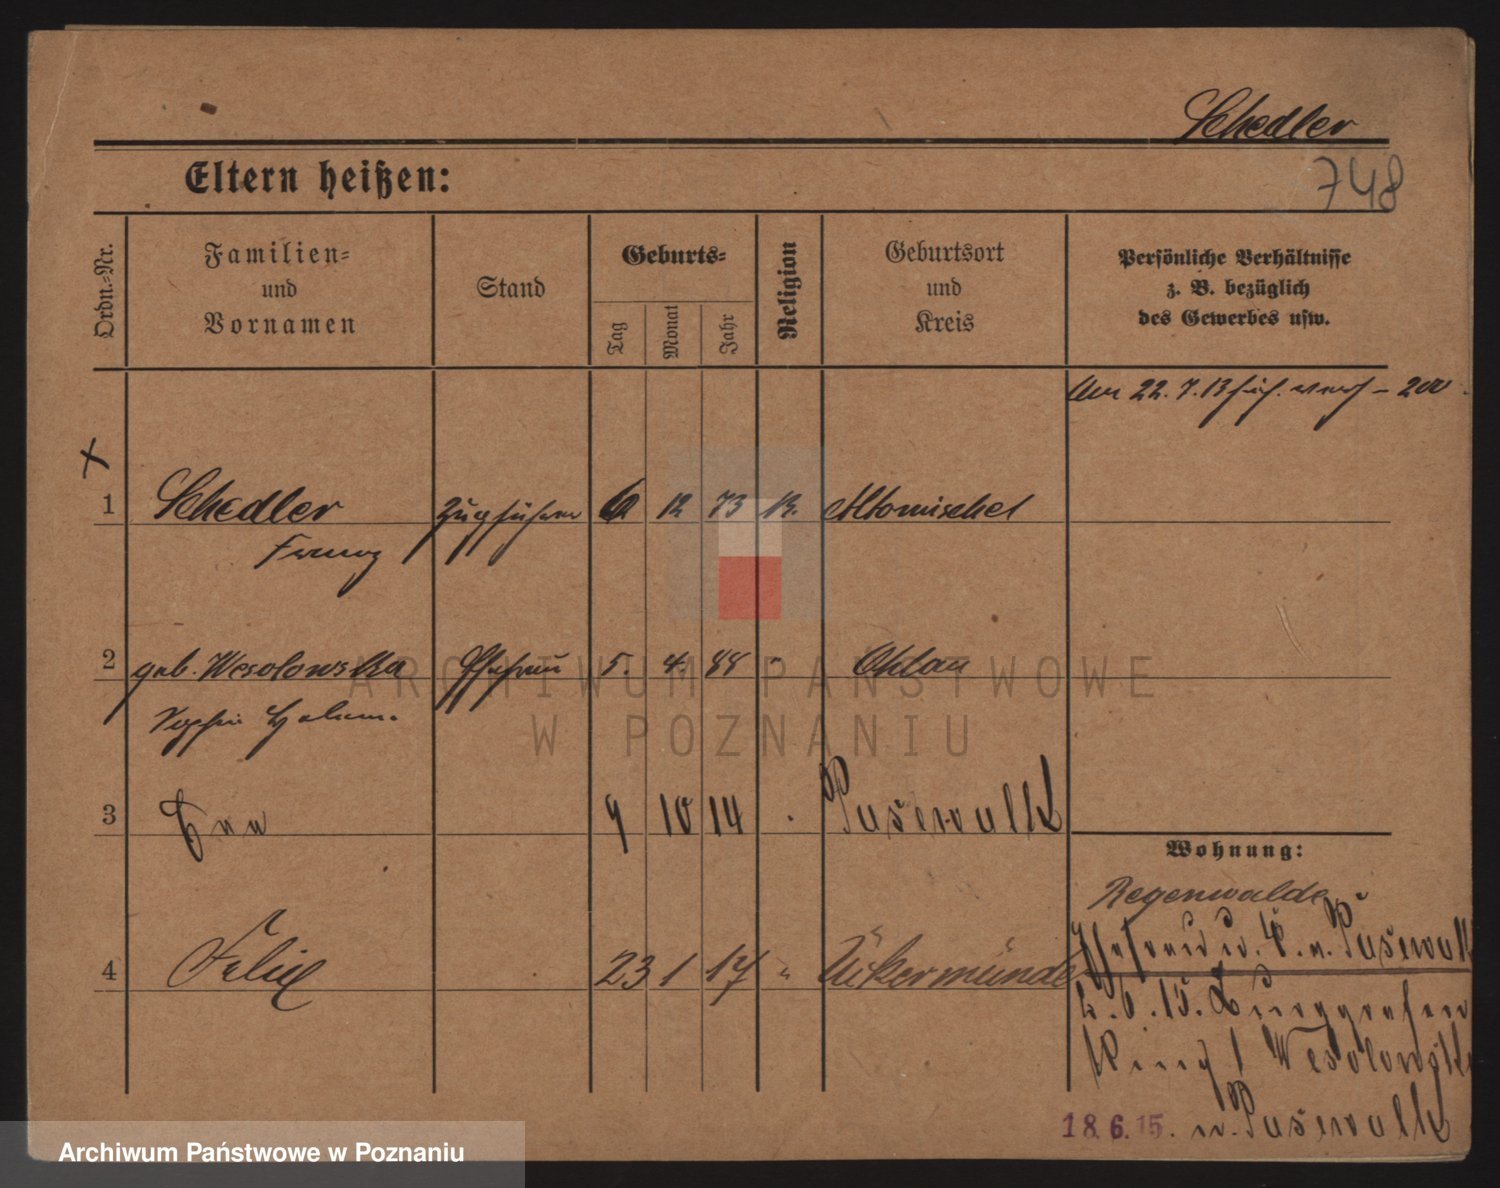 Schedler
748
Eltern heißen:
Ordn.-Nr.
Familien-
und
Vornamen
Stand
Geburts-
Tag
Monat
Jahr
Religion
Geburtsort
und
Kreis
Persönliche Verhältnisse
z. B. bezüglich
des Gewerbes usw.
Am 22. 7. 13 200
1 Schedler Zugführer 6 12 73 k. Altomischel
Franz
2 geb. Wesolowska Ehefrau 5. 4. 88 " Ohlau
Sophie
3 9 10 14 Pasewalk
Wohnung:
Regenwalde
4 Felix 23 1 17 " Ückermünde
Ehefrau u. K. n. Pasewalk
2. 6. 15. Burggrafen
Ring 1 Wesolowski
18. 6. 15. n. Pasewalk
ARCHIWUM PAŃSTWOWE
W POZNANIU
Archiwum Państwowe w Poznaniu